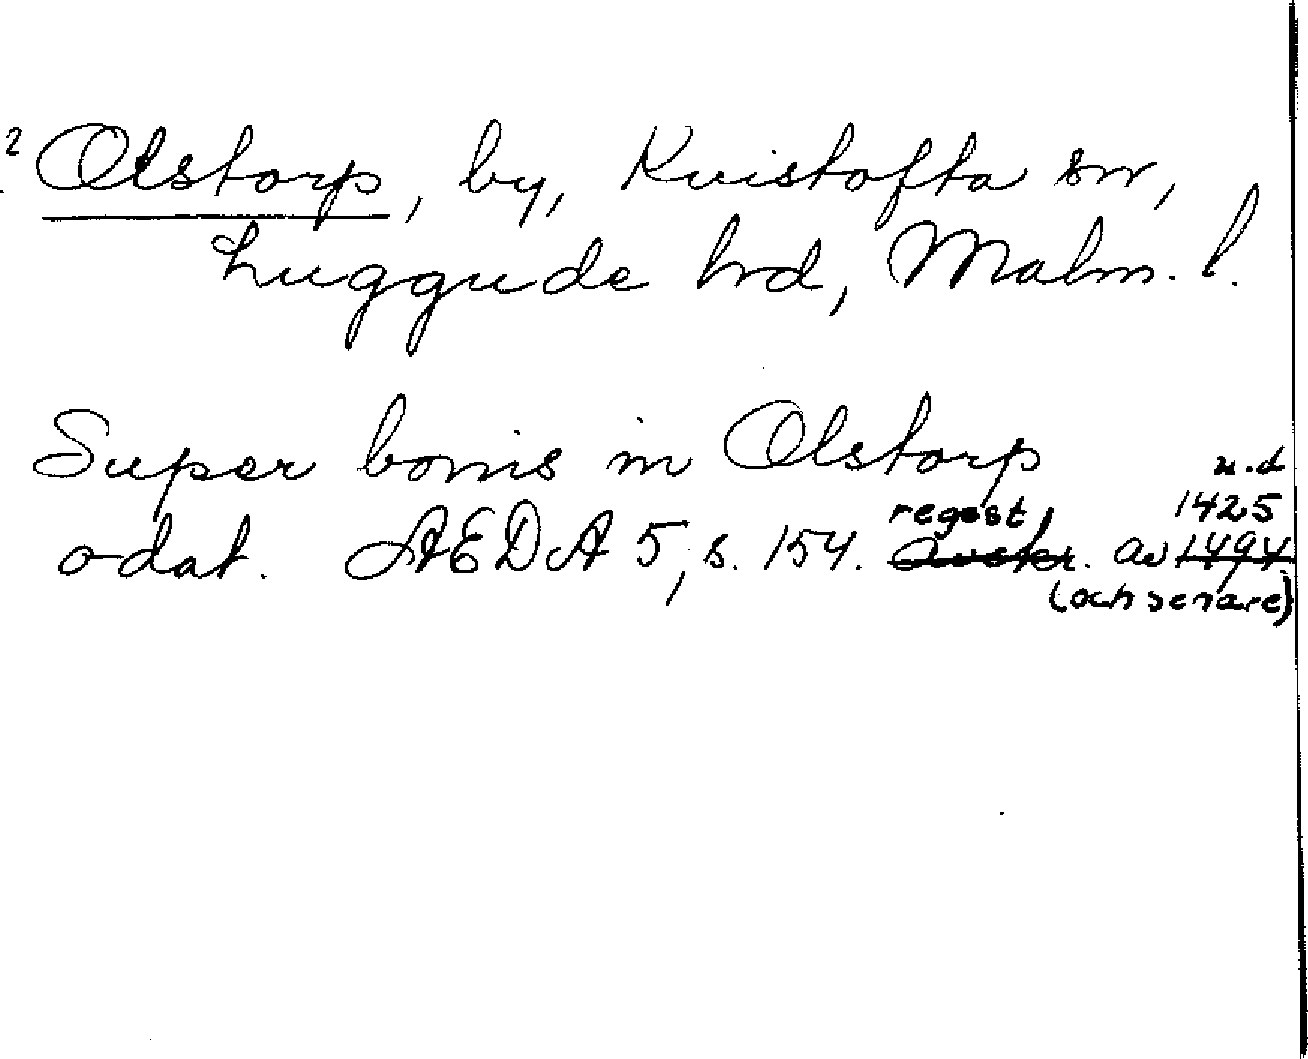 ? Olstorp, by, Kvistofta sn,
Luggude hd, Malm. l.
Super bonis in Olstorp
u.d
regest, 1425
odat. AEDA 5, s. 154. Avskr. av 1494
(och senare)